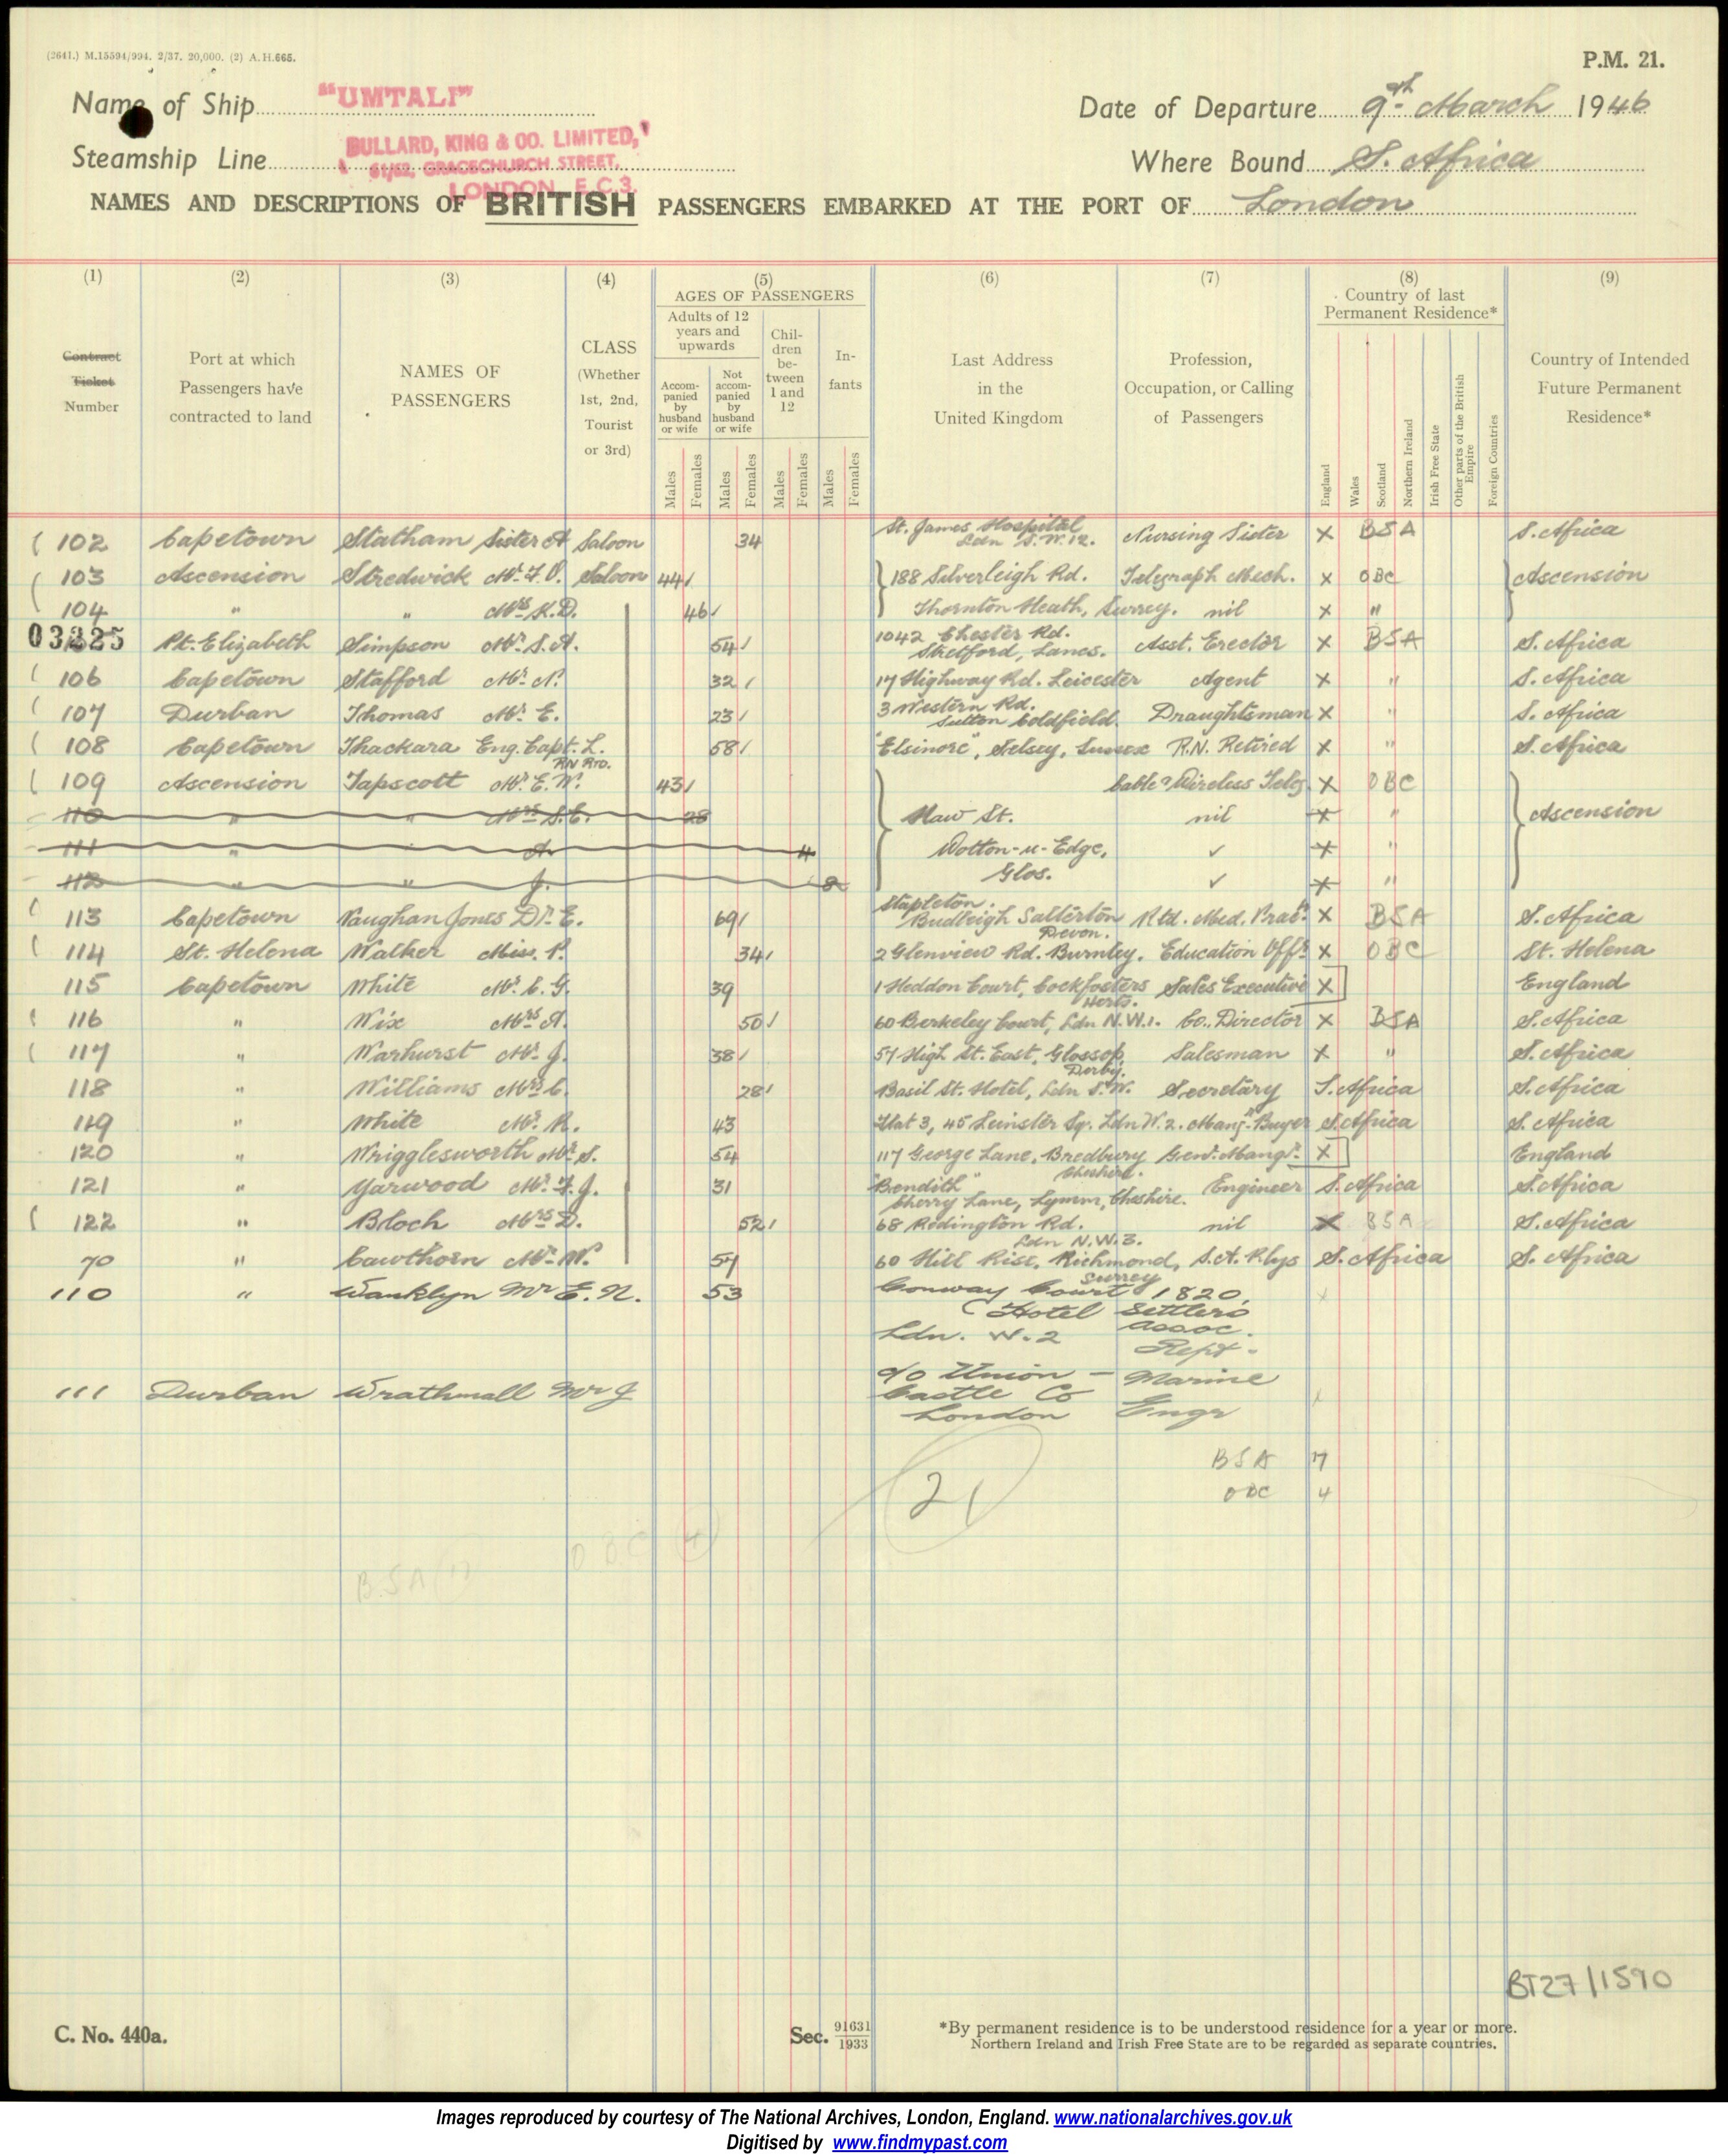 (2641.) M.15594/994. 2/37. 20,000. (2) A.H.665.
P.M. 21.
Name of Ship "UMTALI"
Date of Departure 9th March 1946
Steamship Line BULLARD, KING & CO. LIMITED,
61/62, GRACECHURCH STREET,
LONDON, E.C.3.
Where Bound S. Africa
NAMES AND DESCRIPTIONS OF BRITISH PASSENGERS EMBARKED AT THE PORT OF London
(1) (2) (3) (4) (5) (6) (7) (8) (9)
Contract Ticket Number
Port at which Passengers have contracted to land
NAMES OF PASSENGERS
CLASS (Whether 1st, 2nd, Tourist or 3rd)
AGES OF PASSENGERS
Adults of 12 years and upwards
Accompanied by husband or wife
Not accompanied by husband or wife
Children between 1 and 12
Infants
Males Females Males Females Males Females Males Females
Last Address in the United Kingdom
Profession, Occupation, or Calling of Passengers
Country of last Permanent Residence*
England Wales Scotland Northern Ireland Irish Free State Other parts of the British Empire Foreign Countries
Country of Intended Future Permanent Residence*
102 Capetown Statham Sister A Saloon 34 St. James Hospital Ldn S.W.12. Nursing Sister X BSA S. Africa
103 Ascension Stredwick Mr. F.V. Saloon 44 188 Silverleigh Rd. Telegraph Mech. X OBC Ascension
104 " " Mrs K.D. 46 Thornton Heath, Surrey. nil X "
03225 Pt. Elizabeth Simpson Mr. S.A. 54 1042 Chester Rd. Stretford, Lancs. Asst. Erector X BSA S. Africa
106 Capetown Stafford Mr. N. 32 17 Highway Rd. Leicester Agent X " S. Africa
107 Durban Thomas Mr. E. 23 3 Western Rd. Sutton Coldfield. Draughtsman X " S. Africa
108 Capetown Thackara Eng. Capt. L. RN Rtd. 58 "Elsinore", Selsey, Sussex R.N. Retired X " S. Africa
109 Ascension Tapscott Mr. E.W. 43 Cable & Wireless Teleg X OBC
110 " " Mrs S.C. 28 Haw St. nil X " Ascension
111 " A. 4 Wotton-u-Edge, ✓ X "
112 " " J. 8 Glos. ✓ X "
113 Capetown Vaughan Jones Dr. E. 69 Stapleton. Budleigh Salterton Devon. Rtd. Med. Prac. X BSA S. Africa
114 St. Helena Walker Miss. P. 34 2 Glenview Rd. Burnley. Education Offr. X OBC St. Helena
115 Capetown White Mr. C.G. 39 1 Heddon Court, Cockfosters Herts. Sales Executive X England
116 " Wix Mrs A. 50 60 Berkeley Court, Ldn N.W.1. Co. Director X BSA S. Africa
117 " Warhurst Mr. J. 38 57 High St. East, Glossop, Derby. Salesman X " S. Africa
118 " Williams Mrs C. 28 Basil St. Hotel, Ldn S.W. Secretary S. Africa S. Africa
119 " White Mr. R. 43 Flat 3, 45 Leinster Sq. Ldn W.2. Mang. Buyer S. Africa S. Africa
120 " Wrigglesworth Mr. S. 54 117 George Lane, Bredbury Cheshire. Genl. Mangr. X England
121 " Yarwood Mr. F.J. 31 "Bendith" Cherry Lane, Lymm, Cheshire. Engineer S. Africa S. Africa
122 " Bloch Mrs D. 52 68 Redington Rd. Ldn N.W.3. nil X BSA S. Africa
70 " Cawthorn Mr. W. 57 60 Hill Rise, Richmond, Surrey S.A. Rlys S. Africa S. Africa
110 " Wanklyn Mr E.N. 53 Conway Court Hotel Ldn. W.2 1820, Settlers Assoc. Rept. X
111 Durban Wrathmall Mr J c/o Union-Castle Co London Marine Engr
BSA 17
OBC 4
21
OBC (4)
BSA (17)
BT27/1590
C. No. 440a.
Sec. 91631/1933
*By permanent residence is to be understood residence for a year or more.
Northern Ireland and Irish Free State are to be regarded as separate countries.
Images reproduced by courtesy of The National Archives, London, England. www.nationalarchives.gov.uk
Digitised by www.findmypast.com